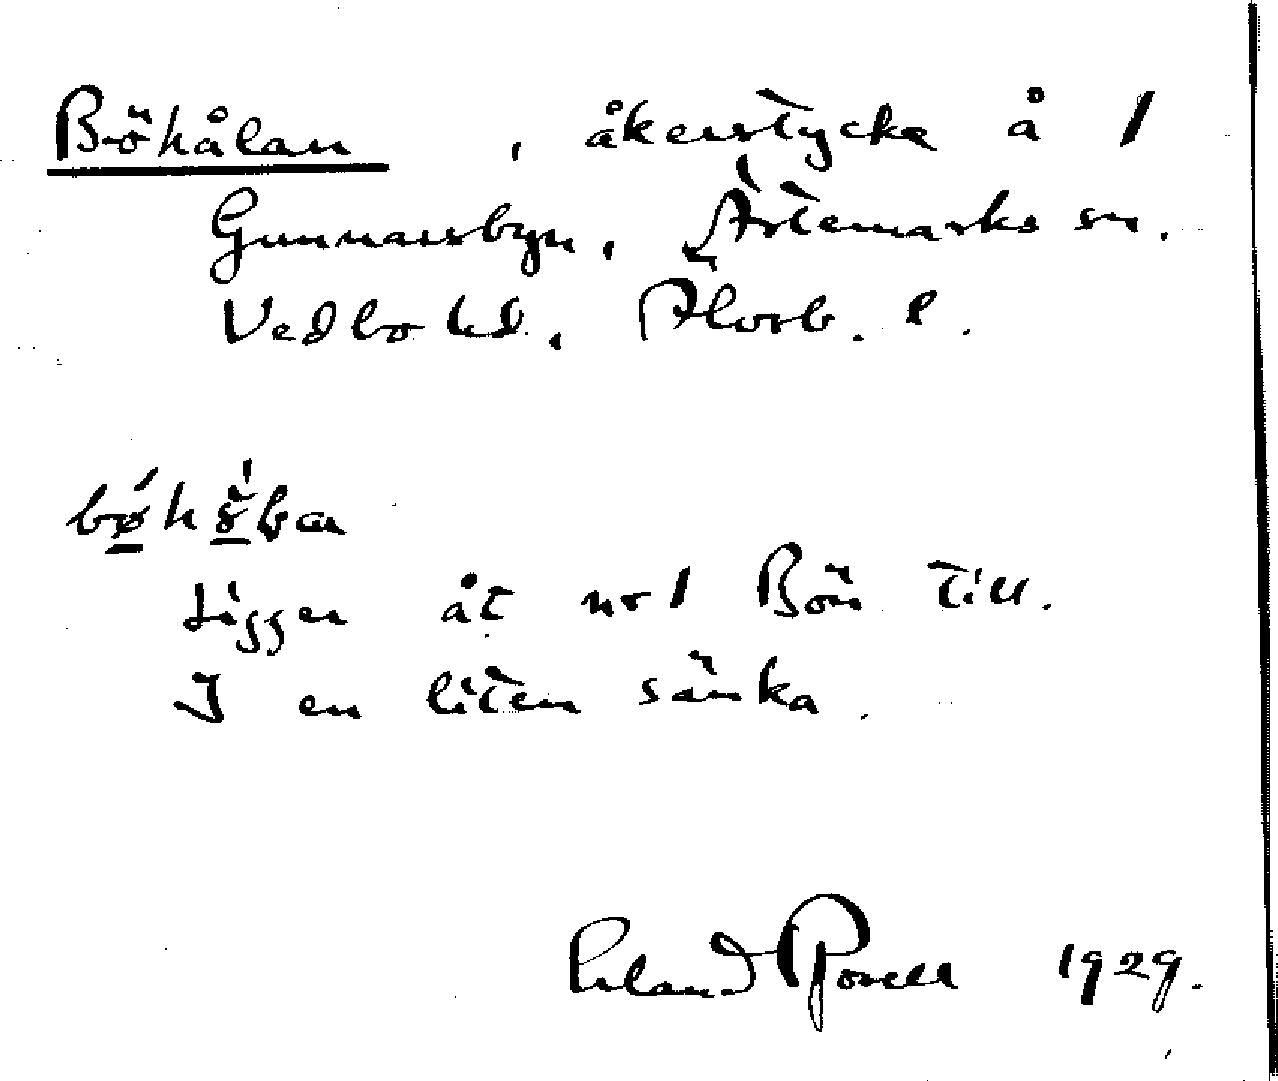 Böhålan, åkerstycke å 1
Gunnarsbyn, Ärtemarks sn.
Vedbo hd, Älvsb. l.
Ligger åt nr 1 Bön till.
I en liten sänka.
Erland Rosell 1929.